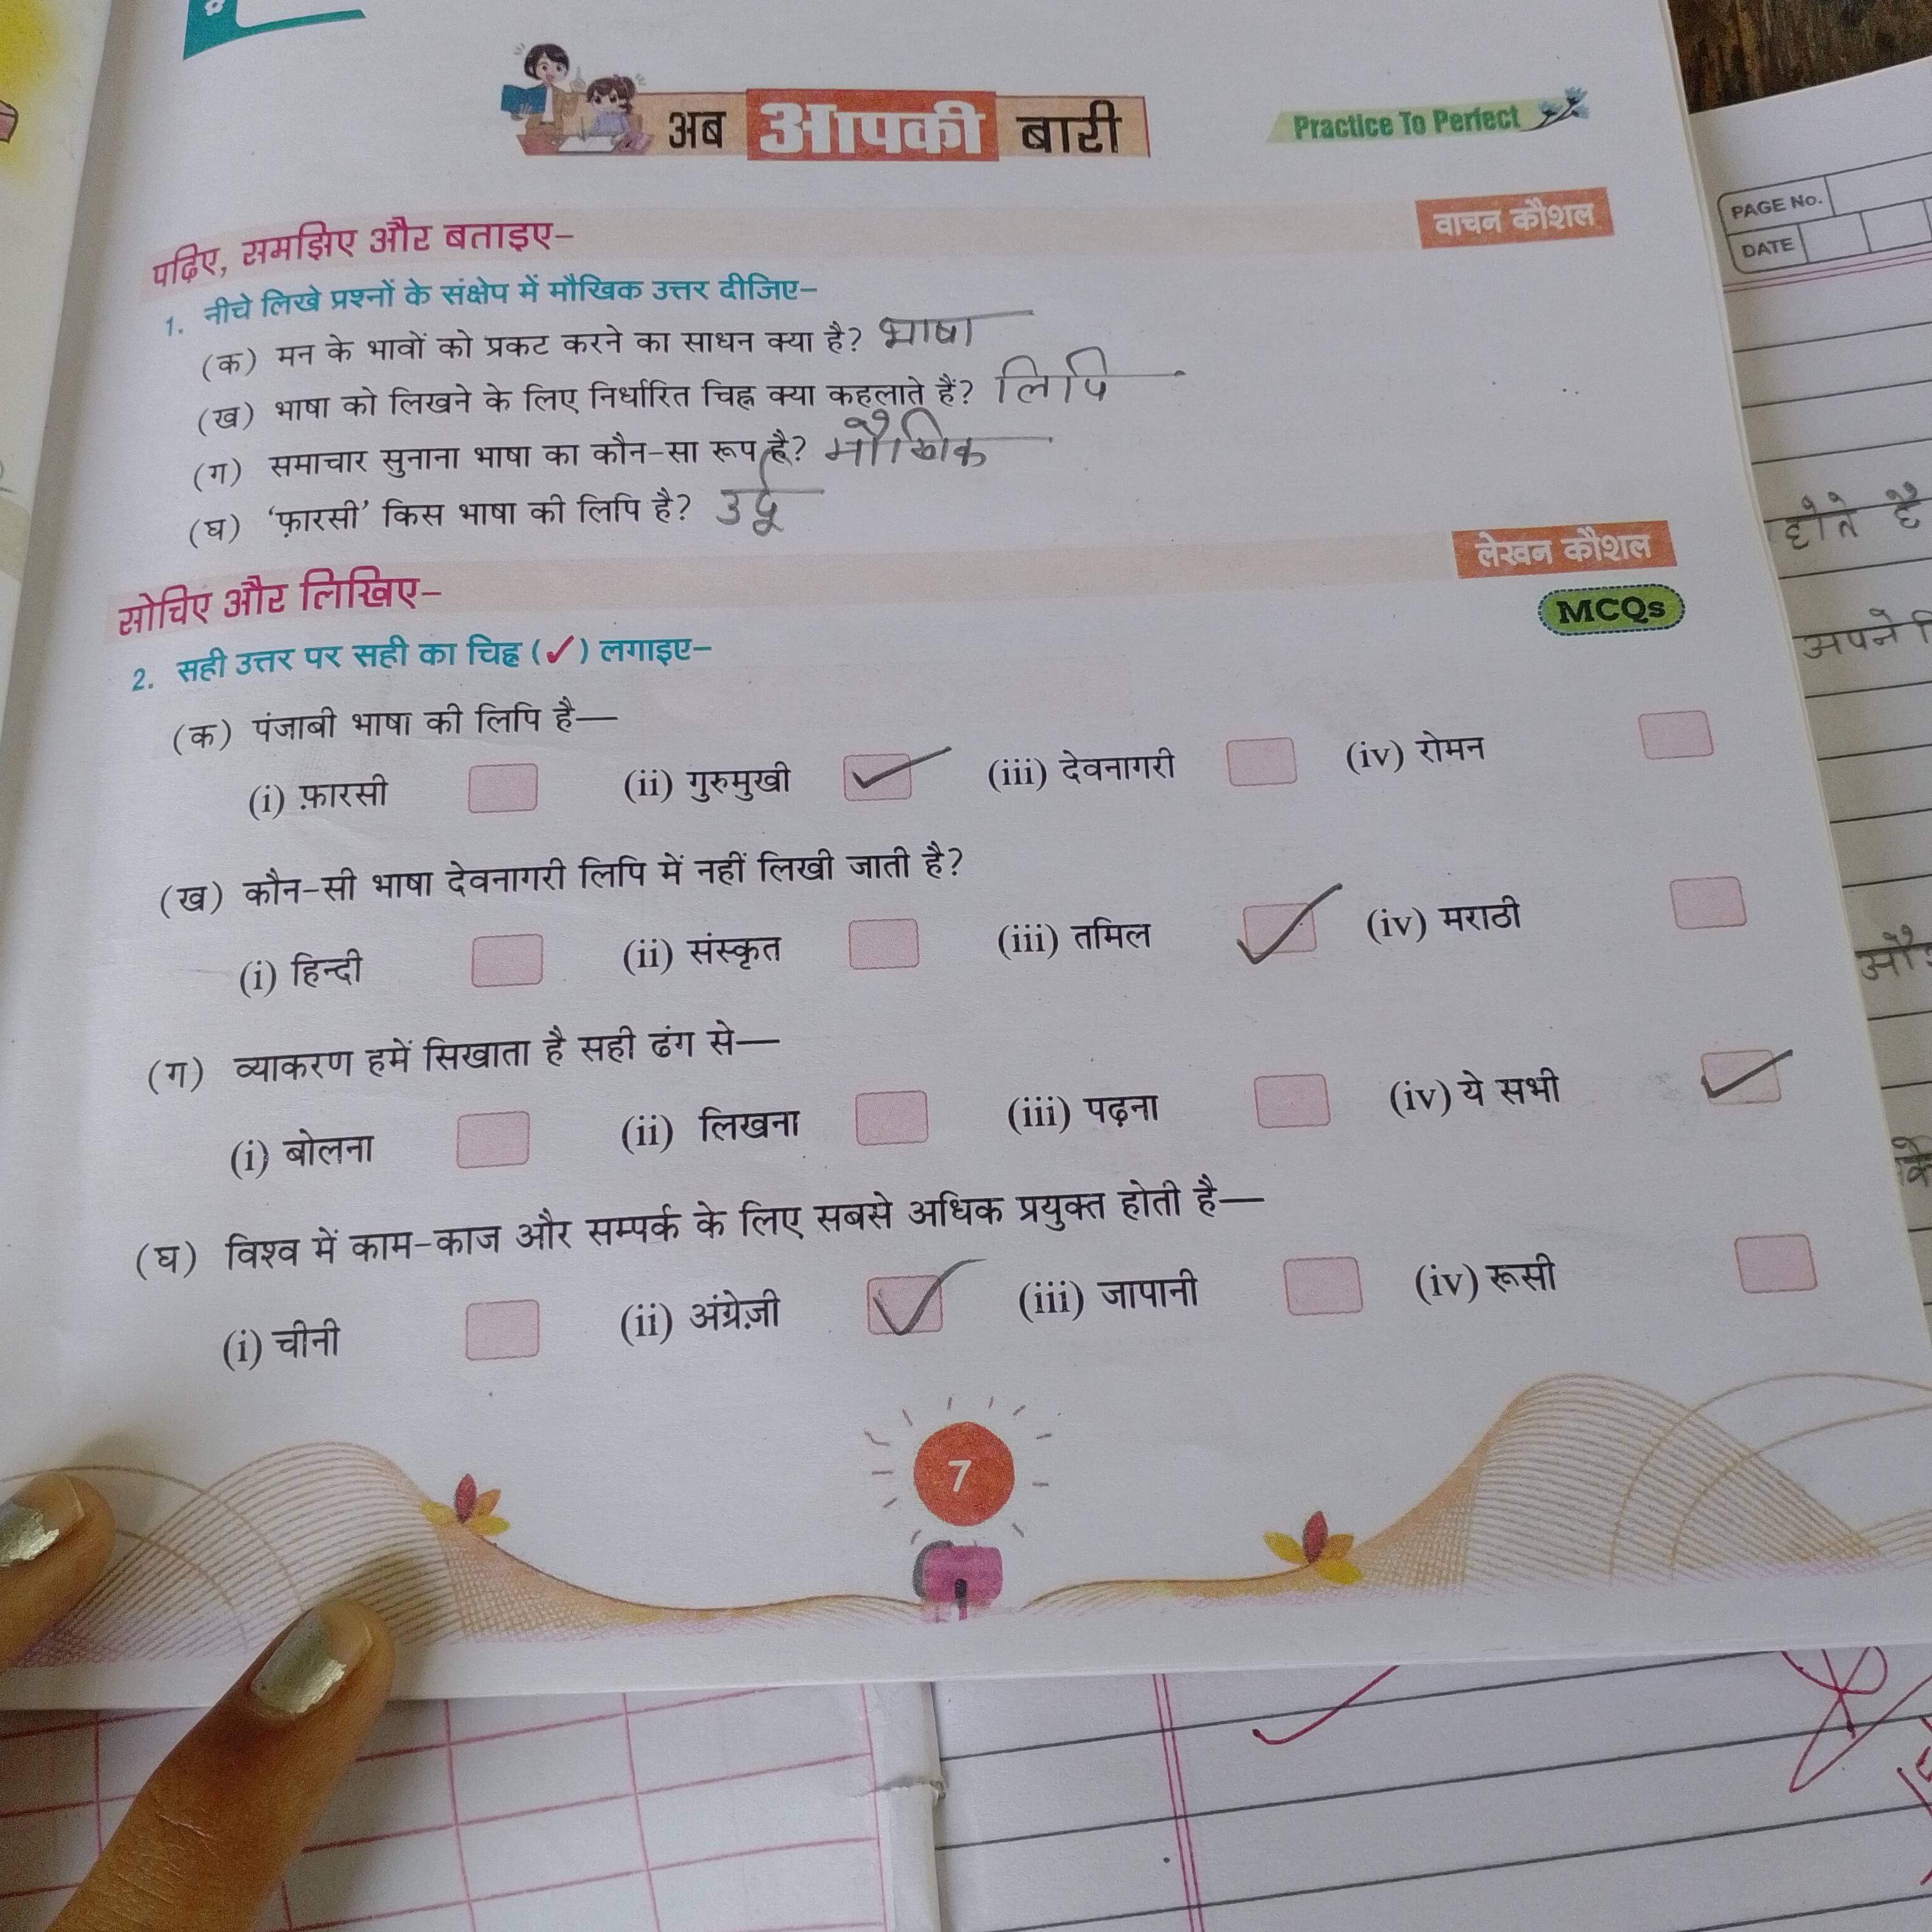 अब आपकी बारी
Practice To Perfect
पढ़िए, समझिए और बताइए–
वाचन कौशल
1. नीचे लिखे प्रश्नों के संक्षेप में मौखिक उत्तर दीजिए–
(क) मन के भावों को प्रकट करने का साधन क्या है? भाषा
(ख) भाषा को लिखने के लिए निर्धारित चिह्न क्या कहलाते हैं? लिपि
(ग) समाचार सुनाना भाषा का कौन-सा रूप है? मौखिक
(घ) ‘फ़ारसी’ किस भाषा की लिपि है? उर्दू
सोचिए और लिखिए–
लेखन कौशल
MCQs
2. सही उत्तर पर सही का चिह्न (✓) लगाइए–
(क) पंजाबी भाषा की लिपि है—
(i) फ़ारसी (ii) गुरुमुखी ✓ (iii) देवनागरी (iv) रोमन
(ख) कौन-सी भाषा देवनागरी लिपि में नहीं लिखी जाती है?
(i) हिन्दी (ii) संस्कृत (iii) तमिल ✓ (iv) मराठी
(ग) व्याकरण हमें सिखाता है सही ढंग से—
(i) बोलना (ii) लिखना (iii) पढ़ना (iv) ये सभी ✓
(घ) विश्व में काम-काज और सम्पर्क के लिए सबसे अधिक प्रयुक्त होती है—
(i) चीनी (ii) अंग्रेज़ी ✓ (iii) जापानी (iv) रूसी
7
PAGE No.
DATE
होते है
अपने